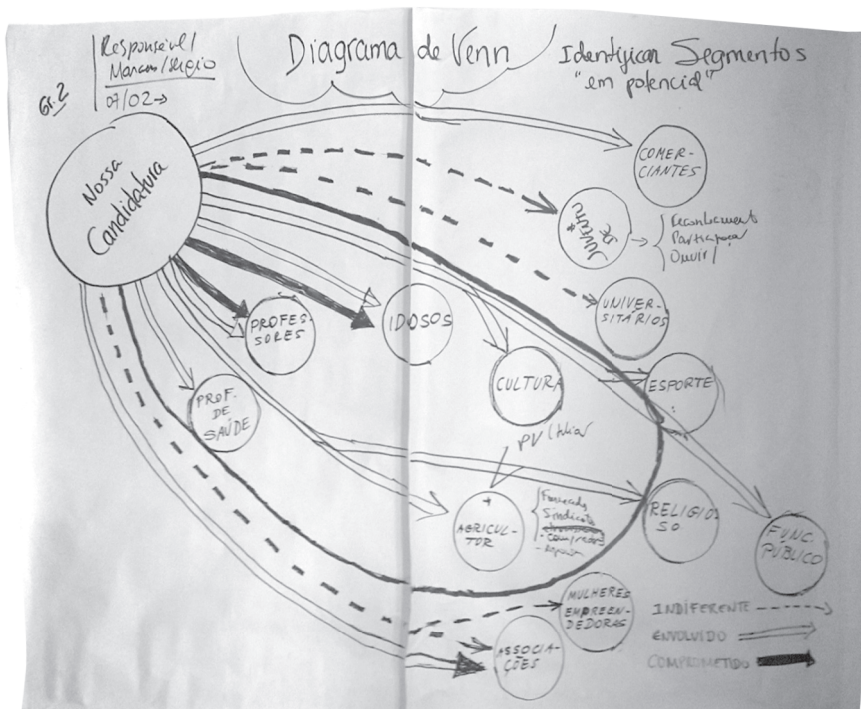 Gr. 2
Responsável/
Marcos/Sérgio
07/02→
Diagrama de Venn
Identificar Segmentos
"em potencial"
Nossa
Candidatura
COMER-
CIANTES
JUVENTU
DE
Ouvir/
UNIVER-
SITÁRIOS
PROFES-
SORES
IDOSOS
CULTURA
ESPORTE
PROF.
DE
SAÚDE
PV
AGRICUL-
TOR
Sindicato
RELIGIO
SO
FUNC.
PÚBLICO
MULHERES
EMPREEN-
DEDORAS
ASSOCIA-
ÇÕES
INDIFERENTE
ENVOLVIDO
COMPROMETIDO